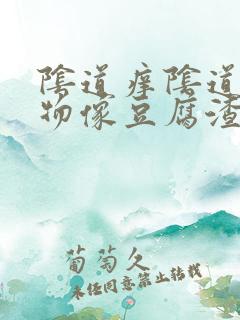 陰道痒陰道
物像豆腐渣
葡萄久
未经同意禁止转载